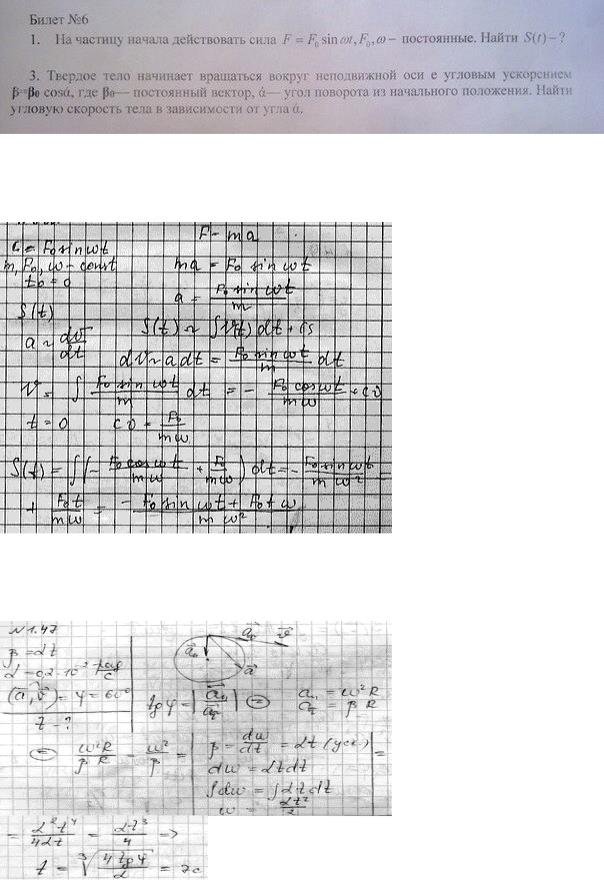 Билет №6
1. На частицу начала действовать сила F = F₀ sin ωt, F₀, ω – постоянные. Найти S(t) – ?
3. Твердое тело начинает вращаться вокруг неподвижной оси е угловым ускорением
β=β₀ cosά, где β₀— постоянный вектор, ά— угол поворота из начального положения. Найти
угловую скорость тела в зависимости от угла ά.
F = ma
= F₀ sin ωt
m, F₀, ω – const
t₀ = 0
ma = F₀ sin ωt
a = F₀ sin ωt / m
S(t)
S(t) = ∫V(t) dt + Cs
a = dv/dt
dv = a dt = F₀ sin ωt / m dt
V = ∫ F₀ sin ωt / m dt = – F₀ cos ωt / mω + cv
t = 0 cv = F₀ / mω
S(t) = ∫(– F₀ cos ωt / mω + F₀ / mω) dt = – F₀ sin ωt / mω²
+ F₀ t / mω = – F₀ sin ωt + F₀ t ω / mω²
№ 1.47
β = αt
α = 0,2·10⁻² рад/с
(a, v) = φ = 60°
t – ?
aₙ a_τ v
a
tg φ = |aₙ / a_τ| =
aₙ = ω²R
a_τ = βR
= ω²R / βR = ω² / β = | β = dω/dt = αt (усл) | =
dω = αt dt
∫dω = ∫αt dt
ω = αt²/2
= α²t⁴ / 4αt = αt³ / 4 =>
t = ∛(4 tg φ / α) = 7с